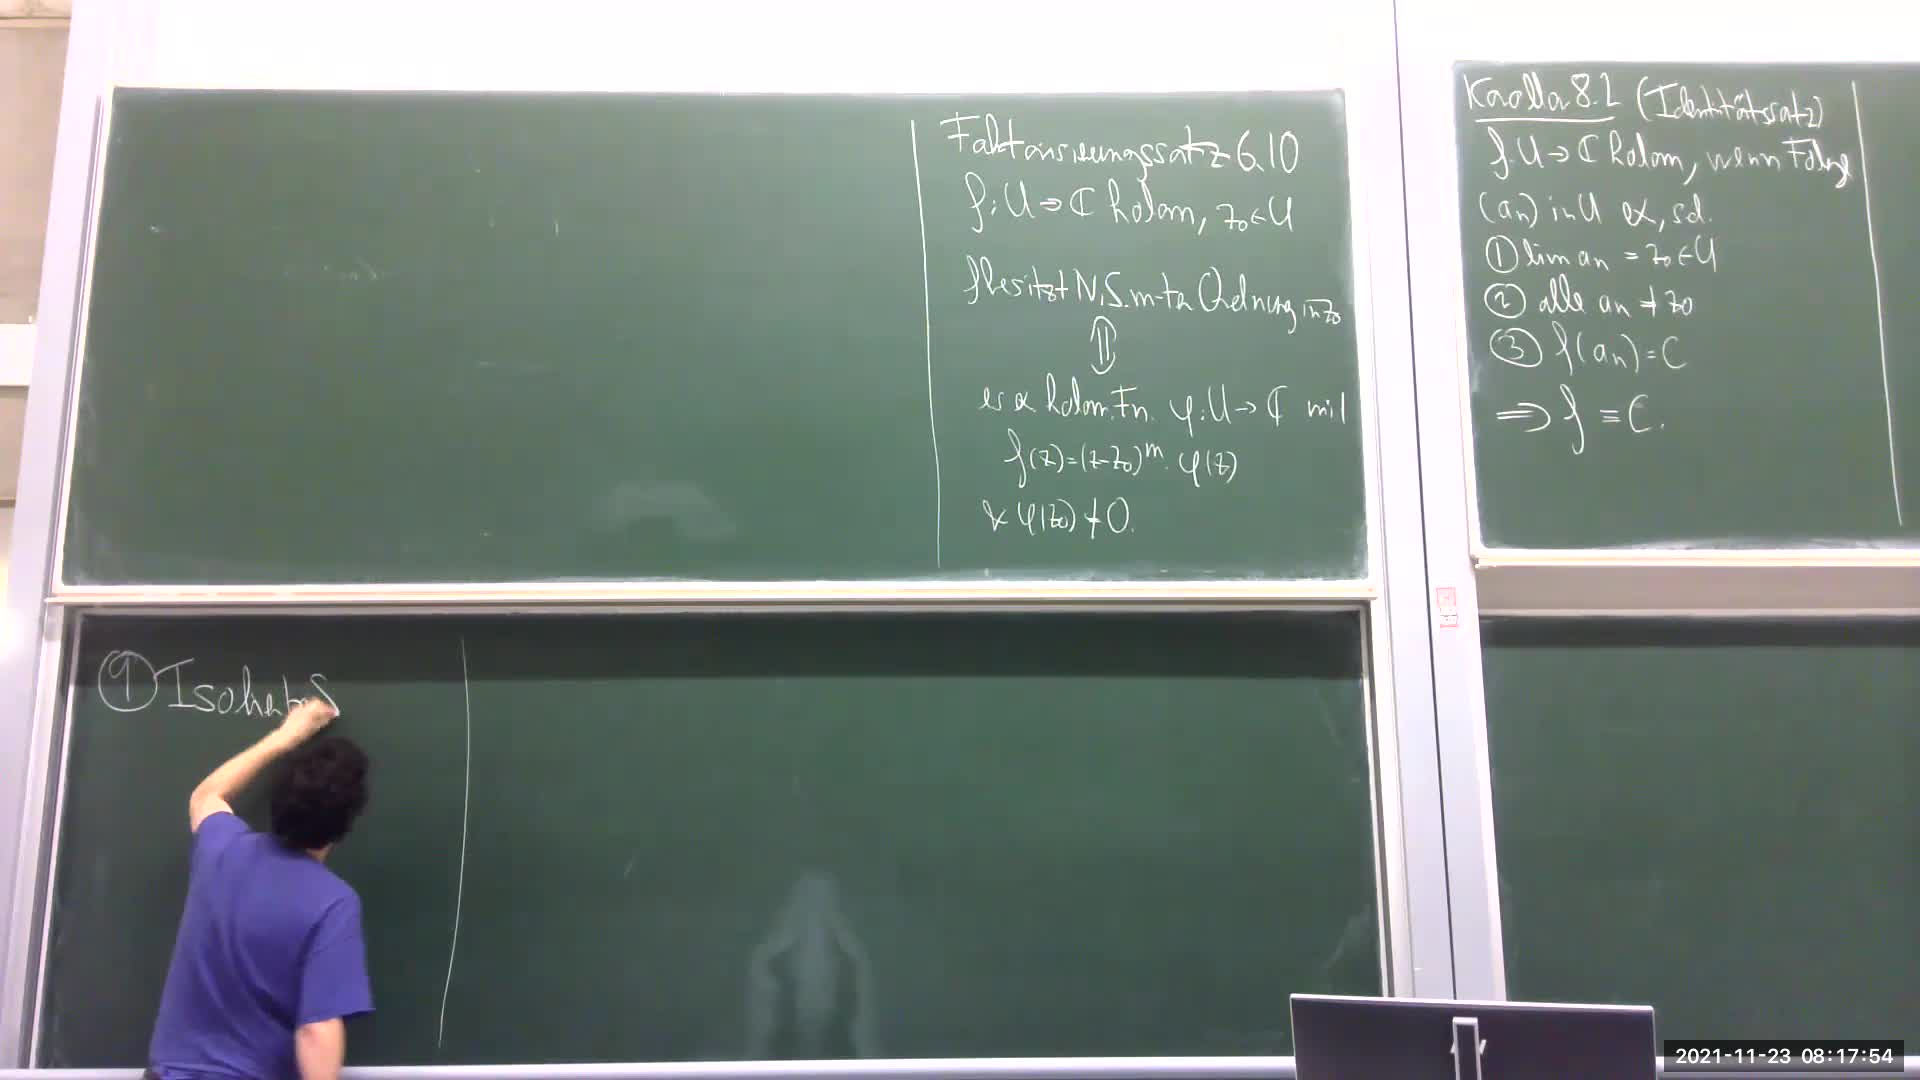 Faktorisierungssatz 6.10
f: U → ℂ holom, z₀ ∈ U
f besitzt N.S. m-ter Ordnung in z₀
⇕
es ex holom. Fn. φ: U → ℂ mit
f(z) = (z-z₀)^m · φ(z)
& φ(z₀) ≠ 0.
Korollar 8.2 (Identitätssatz)
f: U → ℂ holom, wenn Folge
(an) in U ex, sd.
① lim an = z₀ ∈ U
② alle an ≠ z₀
③ f(an) = C
⇒ f ≡ C.
⑨
2021-11-23 08:17:54